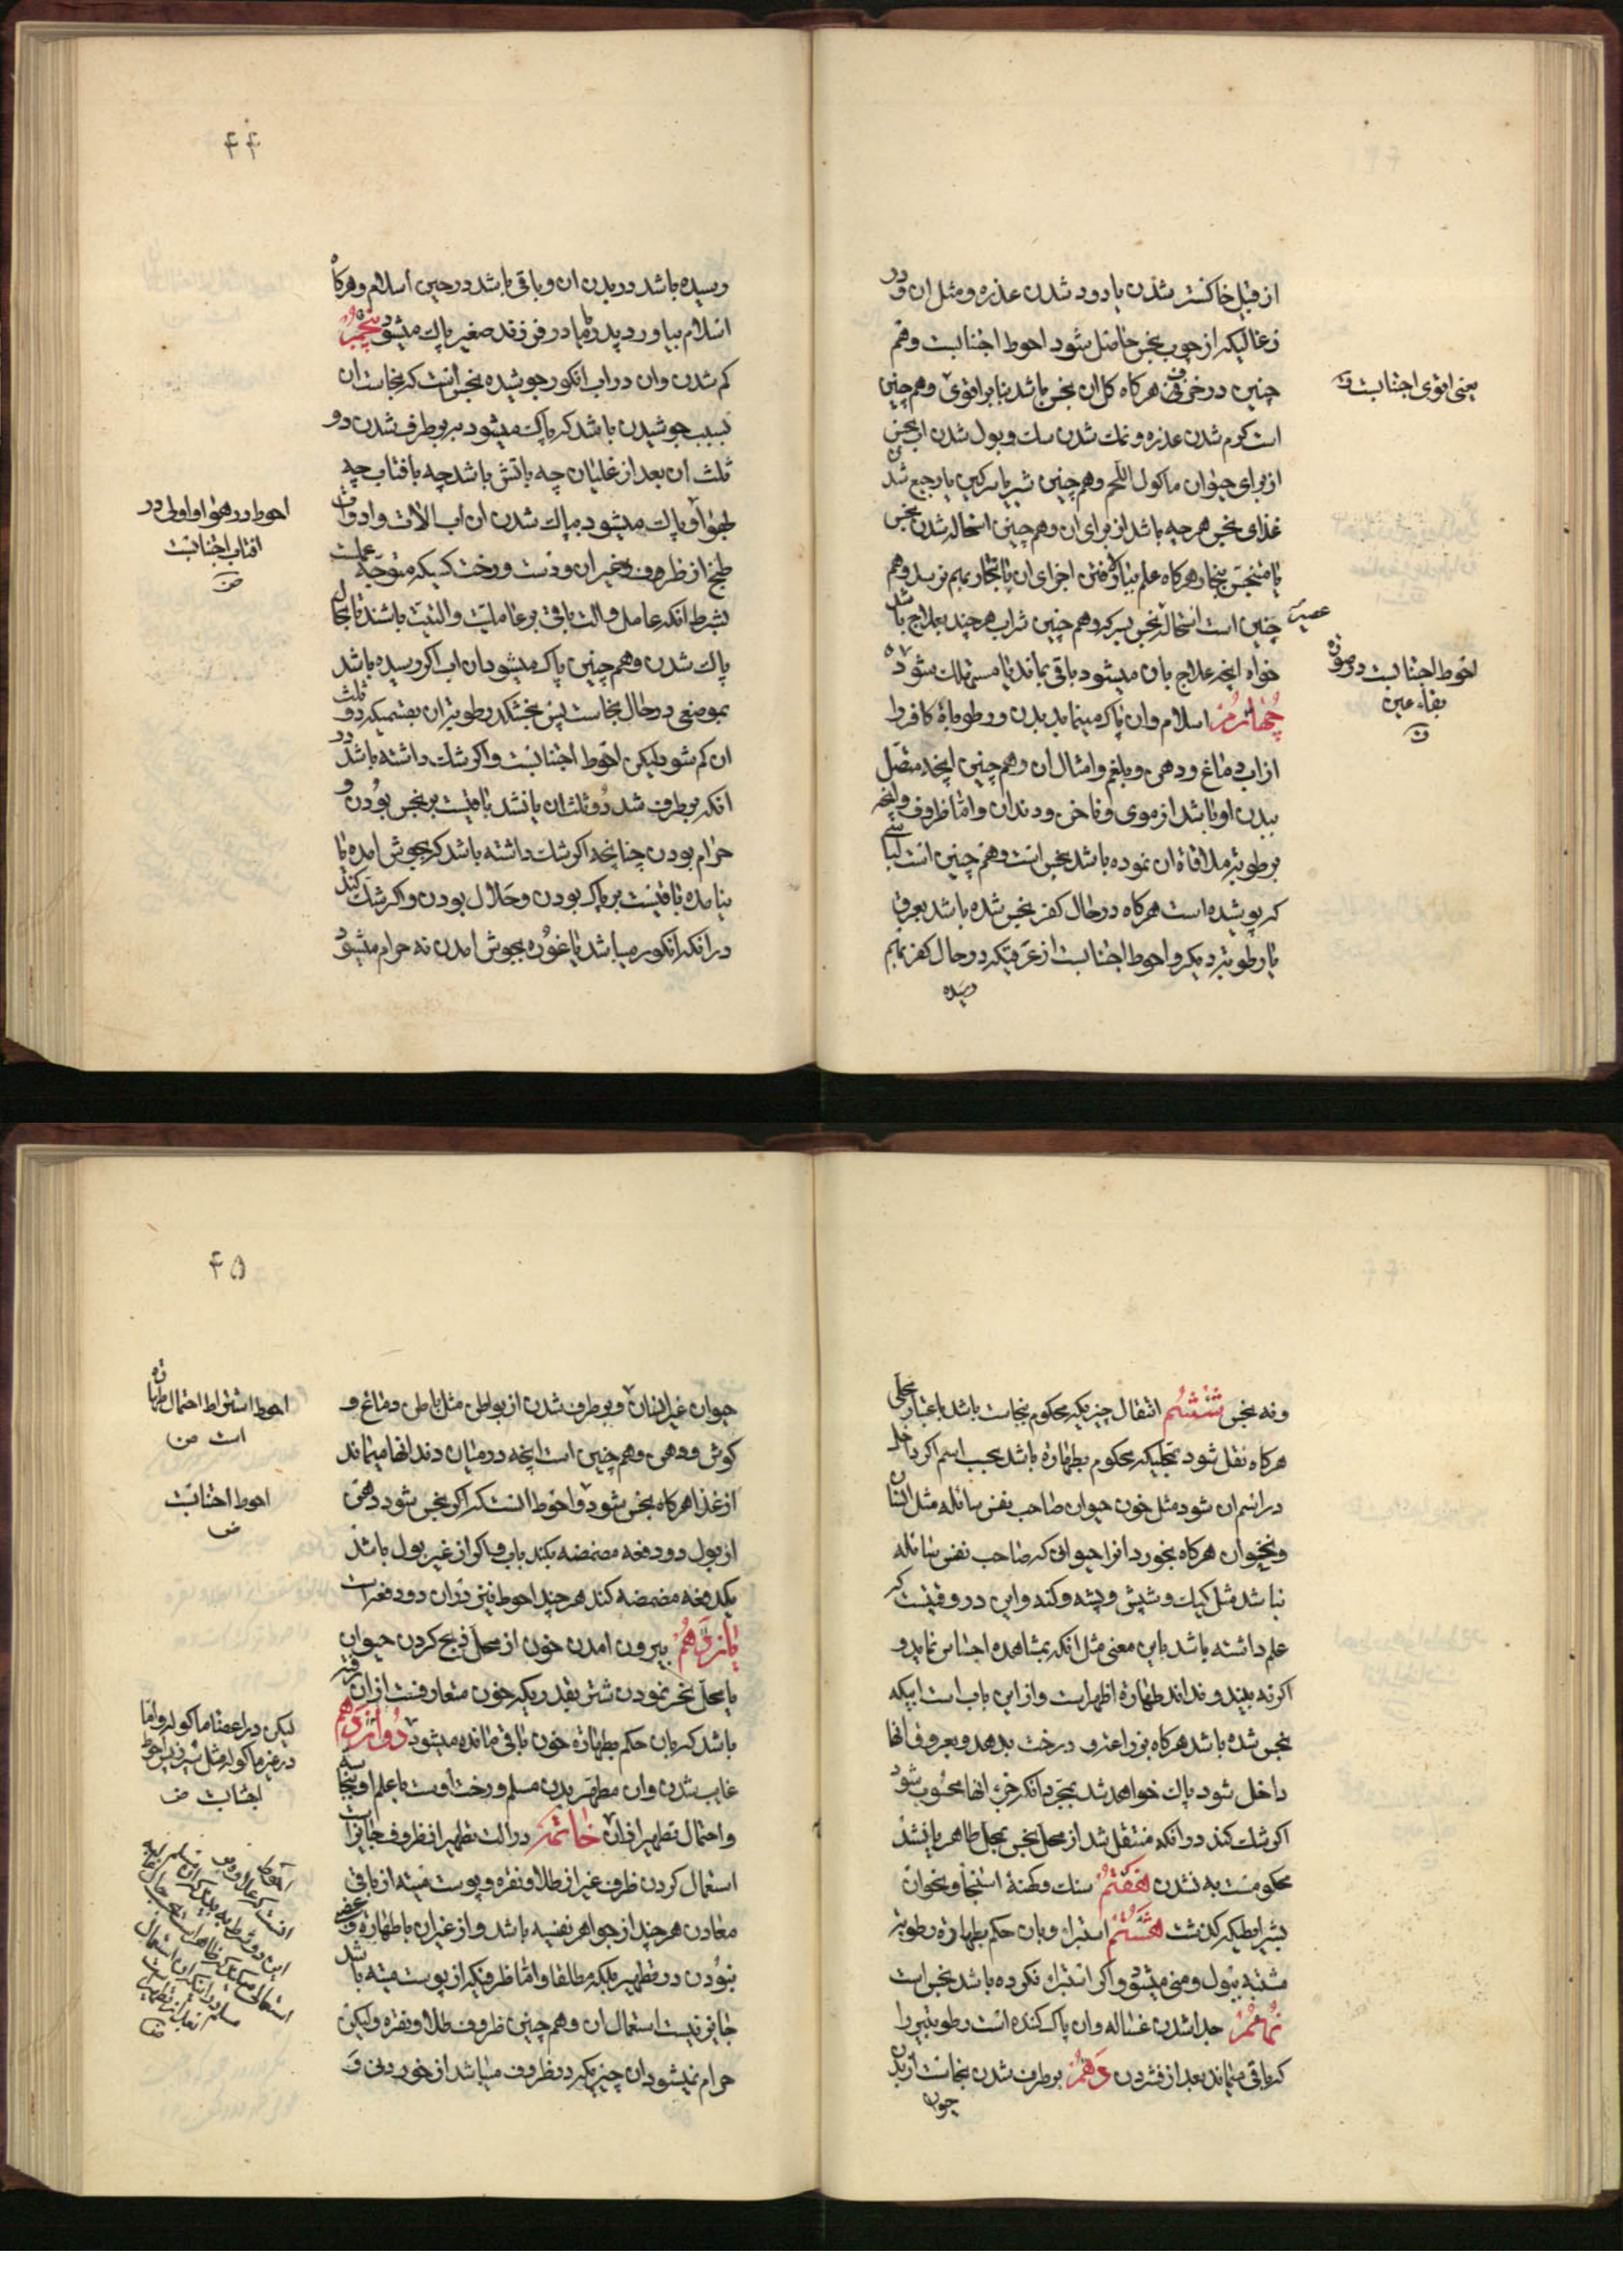 از قبیل خاکستر شدن یا دود شدن عذره و مثل ان و در
زغالیکه از چوب نجس حاصل شود احوط اجتنابست و هم
چنین در خزف هرکاه کل ان نجس باشد بنابر اقوی و هم چنین
یعنی اقوی اجتنابست
است کرم شدن عذره و نمک شدن سک و بول شدن اب نجس
از برای حیوان ماکول اللحم و هم چنین شیر یا سرکین یا رجیع شدن
غذای نجس هر چه باشد از برای ان و هم چنین استحاله شدن نجس
یا متنجس ببخار هرکاه علم ببالا رفتن اجزای ان با بخار بهم نرسد و هم
چنین است استحاله نجس بسرکه و هم چنین شراب هر چند بعلاج باشد
عصیر
خواه انچه علاج بان میشود باقی بماند یا مستهلک شود
احوط اجتنابست در صورة
بقاء عین
چهارم اسلام و ان پاک مینماید بدن و رطوباة کافر را
از اب دماغ و دهن و بلغم و امثال ان و هم چنین انچه متصل
ببدن او باشد از موی و ناخن و دندان و اما ظروف و انچه
برطوبة ملاقاة ان نموده باشد نجس است و هم چنین است لباسی
که پوشیده است هرکاه در حال کفر نجس شده باشد بعرق
یا رطوبة دیکر و احوط اجتنابست از عرقیکه در حال کفر بهم
رسیده
۴۴
رسیده باشد در بدن ان و باقی باشد در حین اسلام و هرکاه
اسلام بیاورد پدر یا مادر فرزند صغیر پاک میشود پنجم
کم شدن و ان در اب انکور جوشیده نجس است که نجاست ان
بسبب جوشیدن باشد که پاک میشود ببرطرف شدن دو
ثلث ان بعد از غلیان چه باتش باشد چه بافتاب چه
بهوا و پاک میشود بپاک شدن ان اب الات و ادوات
احوط در هوا و اولی در
افتاب اجتنابست
طبخ از ظروف و غیر ان و دست و رخت کسیکه متوجه عملست
بشرط انکه عامل و الت باقی بر عاملیت و التیت باشند تا بحال
پاک شدن و هم چنین پاک میشود ان اب اکر رسیده باشد
بموضعی در حال نجاست پس بخشکد رطوبة ان بقسمیکه دو ثلث
ان کم شود لیکن احوط اجتنابست و اکر شک داشته باشد در
انکه برطرف شد دو ثلث ان یا نشد باقیست بر نجس بودن و
حرام بودن چنانچه اکر شک داشته باشد که بجوش امده یا
نیامده باقیست بر پاک بودن و حلال بودن و اکر شک کند
در انکه انکور میباشد یا غوره بجوش امدن نه حرام میشود
و نه نجس ششم انتقال چیزیکه محکوم بنجاست باشد باعتبار محلی
هرکاه نقل شود بمحلیکه محکوم بطهارة باشد بحسب اسم اکر داخل
در اسم ان شود مثل خون حیوان صاحب نفس سائله مثل انسان
و حیوان هرکاه بخورد انرا حیوانی که صاحب نفس سائله
نباشد مثل کیک و شپش و پشه و کنه و این در وقتیست که
علم داشته باشد باین معنی مثل انکه بمشاهده احساس نماید و
اکر نه بیند و نداند طهارة اظهر است و از این باب است ابیکه
نجس شده باشد هرکاه بزراعة و درخت بدهد و بعروق انها
داخل شود پاک خواهد شد بمجرد انکه جزء انها محسوب شود
اکر شک کند در انکه منتقل شد از محل نجس بمحل طاهر یا نشد
محکومست به نشدن هفتم سنک و کهنه استنجا و نحو ان
بشرایطیکه کذشت هشتم استبراء و بان حکم بطهارة رطوبة
مشتبه ببول و منی میشود و اکر استبراء نکرده باشد نجس است
نهم جدا شدن غساله و ان پاک کننده است رطوبتی را
که باقی میماند بعد از فشردن دهم برطرف شدن نجاست از بدن
حیوان
۴۵
حیوان غیر انسان و برطرف شدن از بواطن مثل باطن دماغ و
احوط اشتراط احتمال طهارة
است
کوش و دهن و هم چنین است انچه در میان دندانها میماند
از غذا هرکاه نجس شود و احوط انست که اکر نجس شود دهن
احوط اجتنابست
از بول دو دفعه مضمضه بکند باب و اکر از غیر بول باشد
یکدفعه مضمضه کند هر چند احوط نیز در ان دو دفعه است
یازدهم بیرون امدن خون از محل ذبح کردن حیوان
یا محل نحر نمودن شتر بقدریکه خون متعارفست از ان رفته
باشد که بان حکم بطهارة خون باقی مانده میشود دوازدهم
لیکن در اعضاء ماکوله و اما
در غیر ماکوله مثل سپرز پس احوط
اجتنابست
غایب شدن و ان مطهر بدن مسلم و رخت اوست با علم او بنجاسة
و احتمال تطهیر از ان خاتمة در الت تطهیر از ظروف جایز است
استعمال کردن ظرف غیر از طلا و نقره و پوست میته از باقی
معادن هر چند از جواهر نفیسه باشد و از غیر ان با طهارة و غصبی
نبودن در تطهیر بلکه مطلقا و اما ظرفیکه از پوست میته باشد
جایز نیست استعمال ان و هم چنین ظروف طلا و نقره ولیکن
حرام نمیشود ان چیزیکه در ظروف میباشد از خوردنی و